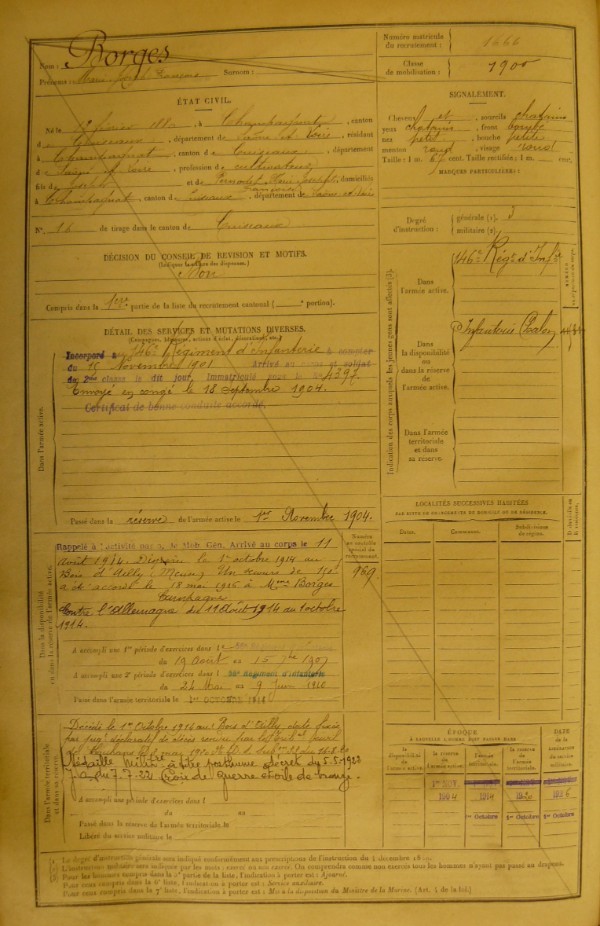 Nom : Borges
Prénoms : Marie Joseph Surnom :
Numéro matricule du recrutement : 1666
Classe de mobilisation : 1900
ÉTAT CIVIL.
Né le février à Champagnat, canton
de Cuiseaux, département de Saône et Loire, résidant
à Champagnat, canton de Cuiseaux, département
de Saône et Loire, profession de cultivateur,
fils de Joseph et de Marie Joseph, domiciliés
à Champagnat, canton de Cuiseaux, département de Saône et Loire
N° 16 de tirage dans le canton de Cuiseaux
SIGNALEMENT.
Cheveux et sourcils châtains
yeux châtains, front bombé
nez petit, bouche petite
menton rond, visage rond
Taille : 1 m. cent. Taille rectifiée : 1 m. cent.
MARQUES PARTICULIÈRES :
DÉCISION DU CONSEIL DE RÉVISION ET MOTIFS.
(Indiquer la nature des dispenses.)
Bon
Compris dans la 1ère partie de la liste du recrutement cantonal ( portion).
Degré d'instruction : générale (1). 3
militaire (2).
DÉTAIL DES SERVICES ET MUTATIONS DIVERSES.
(Campagnes, blessures, actions d'éclat, décorations, etc.)
Dans l'armée active.
Incorporé au 146e Régiment d'Infanterie à compter
du 15 Novembre 1901 Arrivé au corps et soldat
de 2me classe le dit jour, Immatriculé sous le N° 4397
Envoyé en congé le 18 Septembre 1904.
Certificat de bonne conduite accordé.
Passé dans la réserve de l'armée active le 1er Novembre 1904.
Indication des corps auxquels les jeunes gens sont affectés (3).
Dans l'armée active.
146e Rég. d'Inf.ie
Dans la disponibilité ou dans la réserve de l'armée active.
Infanterie Chalon
Dans l'armée territoriale et dans sa réserve.
Dans la disponibilité ou dans la réserve de l'armée active.
Rappelé à l'activité Mob. Gén. Arrivé au corps le 11
Août 1914. Disparu le 1er octobre 1914 au
Bois d'Ailly (Meuse) Un secours de 150f
a été accordé le 18 mai 1916 à Mme Borges
Contre l'Allemagne du 11 Août 1914 au 1 octobre
1914.
969
A accompli une 1re période d'exercices dans l
du 19 Août au 15 7bre 1907
A accompli une 2e période d'exercices dans l 56e Régiment d'infanterie
du 24 Mai au 9 Juin 1910
Passé dans l'armée territoriale le 1er OCTOBRE 1914
LOCALITÉS SUCCESSIVES HABITÉES
PAR SUITE DE CHANGEMENTS DE DOMICILE OU DE RÉSIDENCE.
Dates. Communes. Subdivisions de région.
Dans l'armée territoriale et dans sa réserve.
Décédé le 1er Octobre 1914 au Bois d'Ailly date fixée
par jug. déclaratif de décès rendu par le tribunal
de Louhans le mai 1920
Médaille Milit. à titre posthume décret du 5.5.1922
J.O. du 7.7.22 Croix de guerre étoile de bronze.
A accompli une période d'exercices dans l
du au
Passé dans la réserve de l'armée territoriale le
Libéré du service militaire le
ÉPOQUE
À LAQUELLE L'HOMME DOIT PASSER DANS
la disponibilité de l'armée active. la réserve de l'armée active. l'armée territoriale. la réserve de l'armée territoriale.
DATE de la libération du service militaire.
1904 1914 1920 1926
1er Octobre 1er Octobre 1er Octobre
(1) Le degré d'instruction générale sera indiqué conformément aux prescriptions de l'instruction du 4 décembre
(2) L'instruction militaire sera indiquée par les mots : exercé ou non exercé. On comprendra comme non exercés tous les hommes n'ayant pas passé au drapeau.
(3) Pour les hommes compris dans la 5e partie de la liste, l'indication à porter est : Ajourné.
Pour ceux compris dans la 6e liste, l'indication à porter est : Service auxiliaire.
Pour ceux compris dans la 7e liste, l'indication à porter est : Mis à la disposition du Ministre de la Marine. (Art. de la loi.)